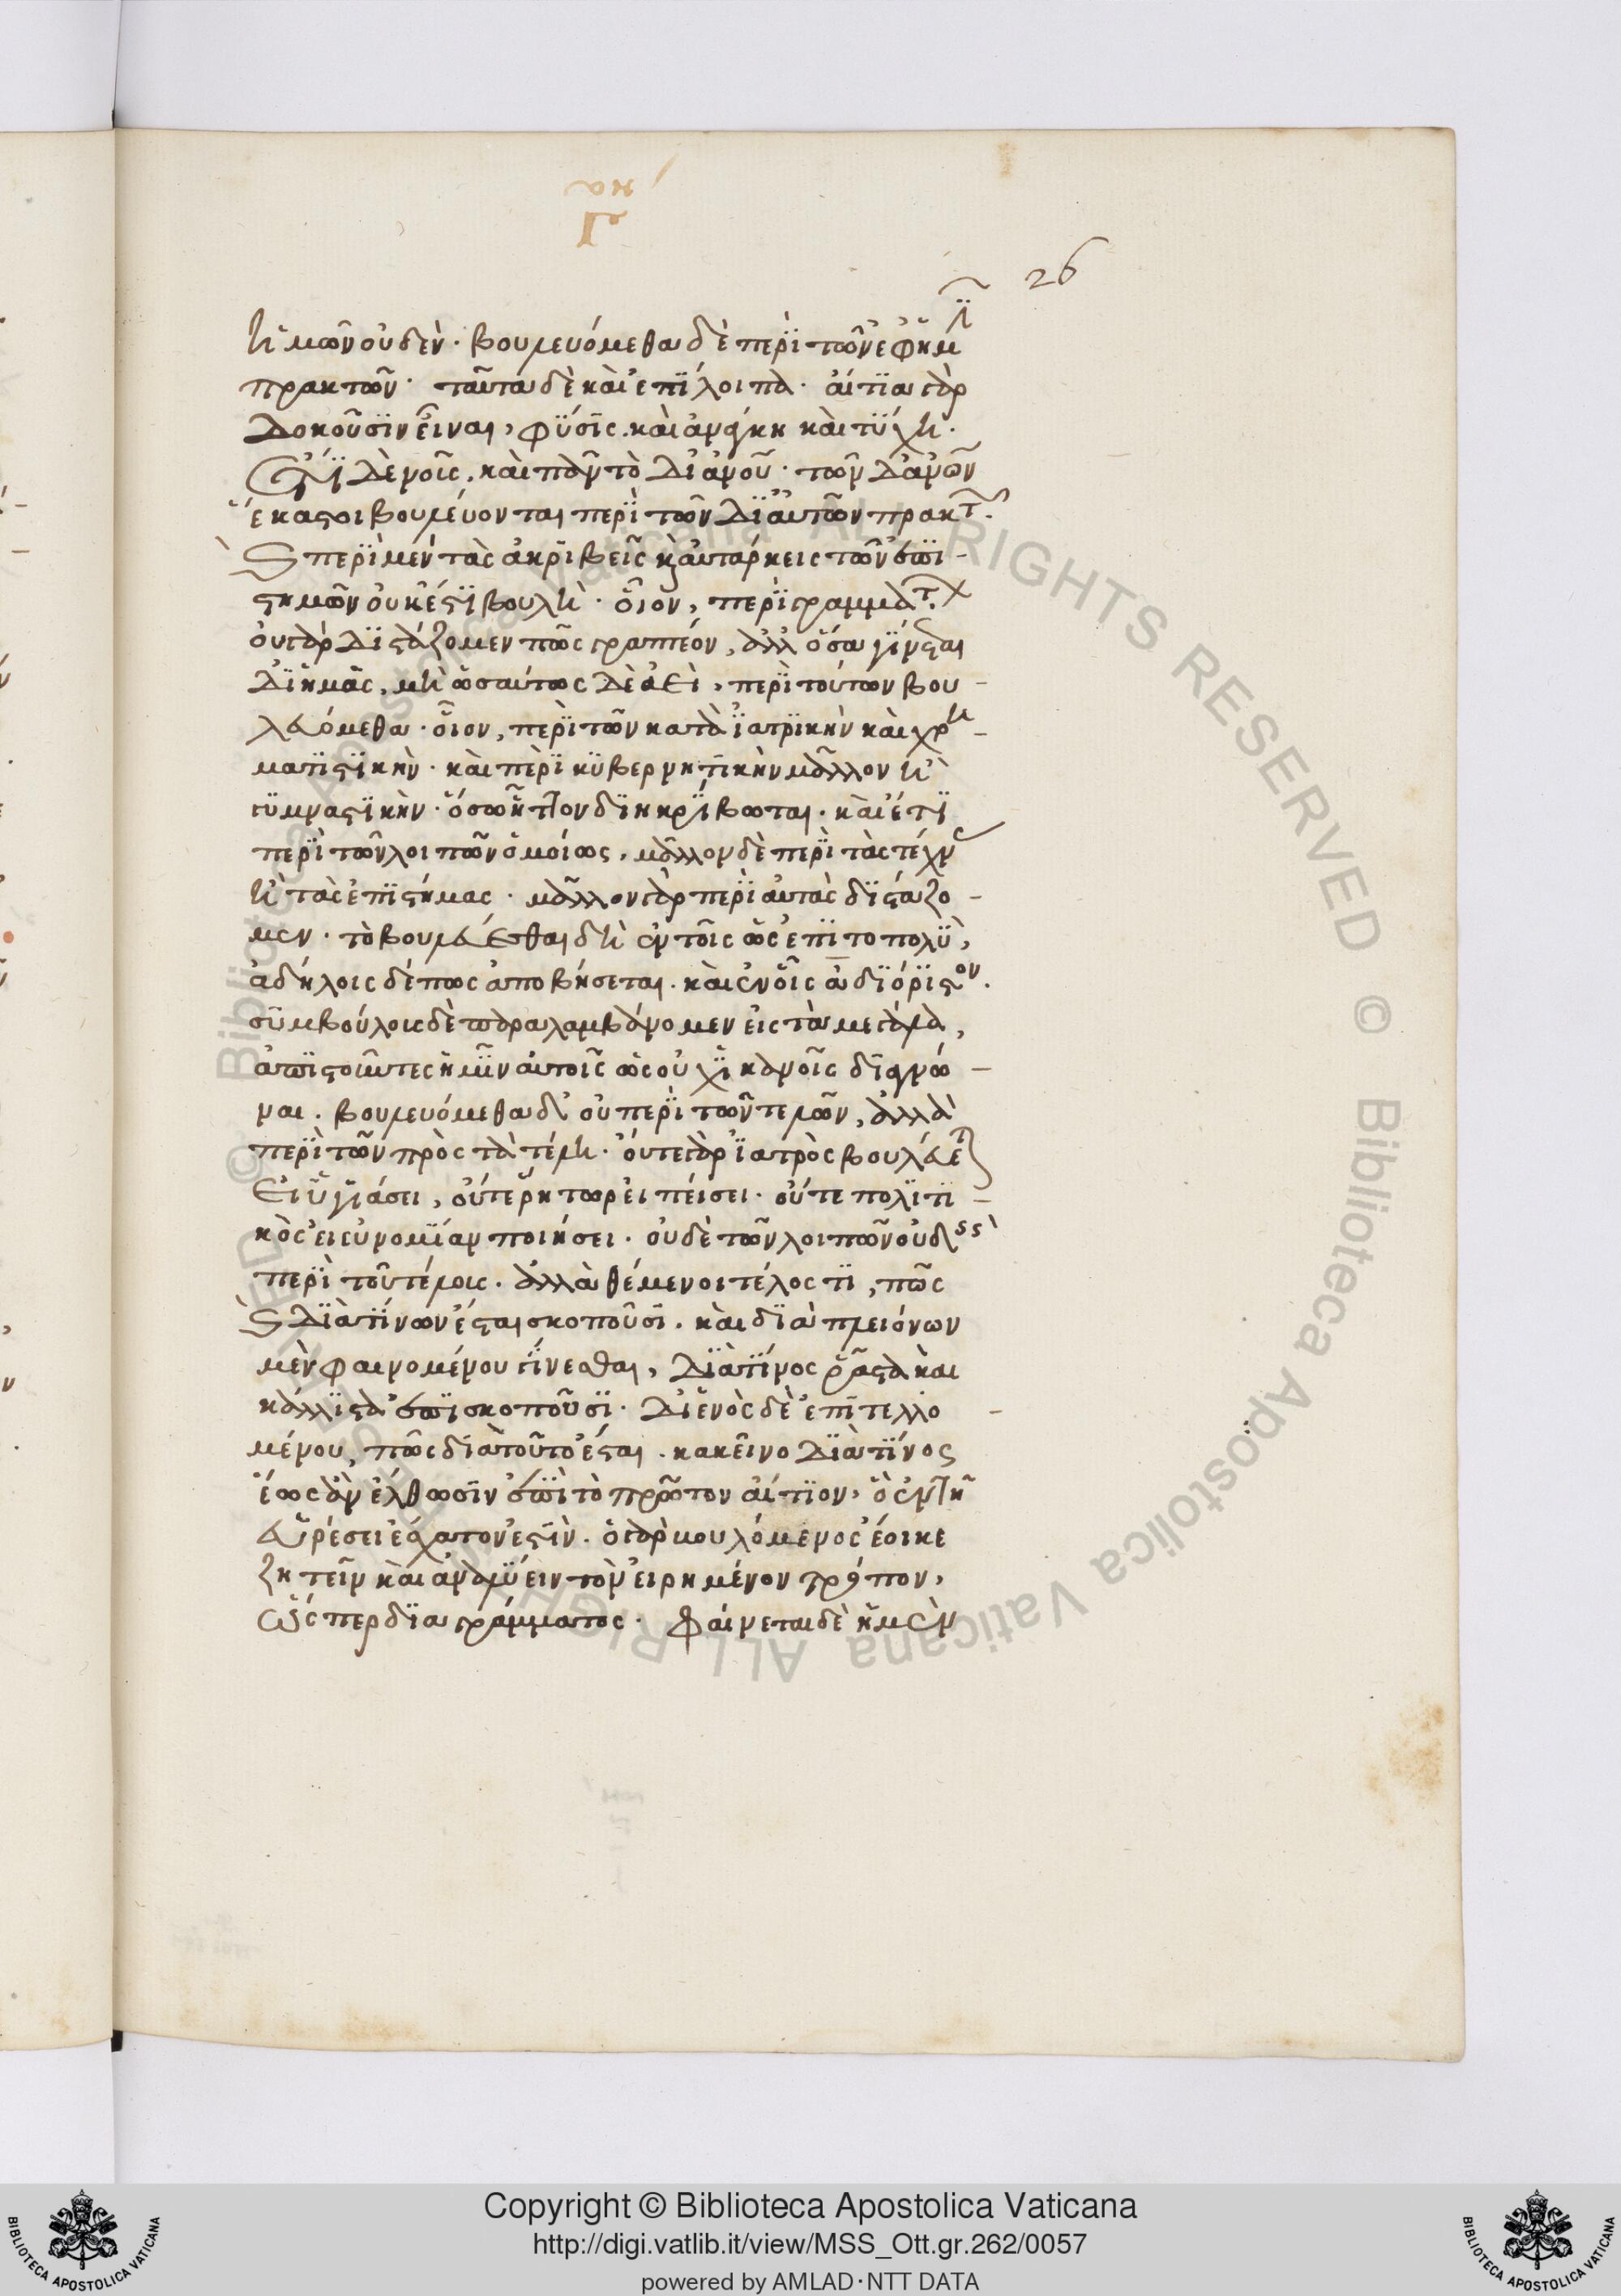 26
ἡμῶν οὐδέν. βουλευόμεθα δὲ περὶ τῶν ἐφ ἡμῖ
πρακτῶν. ταῦτα δὲ καὶ ἐπίλοιπα. αἰτία γὰρ
δοκοῦσιν εἶναι, φύσις. καὶ ἀνάγκη καὶ τύχη.
ἔτι δὲ νοῦς. καὶ πᾶν τὸ δι' ἀνου. τῶν δ' ἀνῶν
ἕκαστοι βουλεύονται περὶ τῶν δι' αὐτῶν πρακτ.
καὶ περὶ μὲν τὰς ἀκριβεῖς καὶ αὐτάρκεις τῶν ἐπι-
στημῶν οὐκ ἔστι βουλή. οἷον, περὶ γραμμάτ.
οὐ γὰρ διστάζομεν πῶς γραπτέον, ἀλλ' ὅσα γίνεται
δι' ἡμᾶς, μὴ ὡσαύτως δὲ ἀεὶ, περὶ τούτων βου-
λευόμεθα. οἷον, περὶ τῶν κατὰ ἰατρικὴν καὶ χρη-
ματιστικὴν. καὶ περὶ κυβερνητικὴν μᾶλλον ἢ
γυμναστικὴν. ὅσω ἧττον διηκρίβωται. καὶ ἔτι
περὶ τῶν λοιπῶν ὁμοίως, μᾶλλον δὲ περὶ τὰς τέχν
ἢ τὰς ἐπιστήμας. μᾶλλον γὰρ περὶ αὐτὰς διστάζο-
μεν. τὸ βουλεύεσθαι δὴ ἐν τοῖς ὡς ἐπιτοπολὺ,
ἀδήλοις δέ πως ἀποβήσεται. καὶ ἐν οἷς ἀδιόριστον.
συμβούλους δὲ παραλαμβάνομεν εἰς τὰ μεγάλα,
ἀπιστοῦντες ἡμῖν αὐτοῖς ὡς οὐχ ἱκανοῖς διαγνῶ-
ναι. βουλευόμεθα δ' οὐ περὶ τῶν τελῶν, ἀλλὰ
περὶ τῶν πρὸς τὰ τέλη. οὔτε γὰρ ἰατρὸς βουλεύε
εἰ ὑγιάσει, οὔτε ῥήτωρ εἰ πείσει. οὔτε πολιτι-
κὸς εἰ εὐνομίαν ποιήσει. οὐδὲ τῶν λοιπῶν οὐδ
περὶ τοῦ τέλους. ἀλλὰ θέμενοι τέλος τι, πῶς
καὶ διὰ τίνων ἔσται σκοποῦσι. καὶ διὰ πλειόνων
μὲν φαινομένου γίνεσθαι, διὰ τίνος ῥᾶστα καὶ
κάλλιστα ἐπισκοποῦσι. δι' ἑνὸς δὲ ἐπιτελλο-
μένου, πῶς διὰ τοῦτο ἔσται. κακεῖνο διὰ τίνος
ἕως ἂν ἔλθωσιν ἐπὶ τὸ πρῶτον αἴτιον, ὃ ἐν τῇ
εὑρέσει ἔσχατον ἐστίν. ὁ γὰρ βουλόμενος ἔοικε
ζητεῖν καὶ ἀναλύειν τὸν εἰρημένον τρόπον,
ὥσπερ διαγράμματος. φαίνεται δὲ ἡ μὲν
Copyright © Biblioteca Apostolica Vaticana
http://digi.vatlib.it/view/MSS_Ott.gr.262/0057
powered by AMLAD·NTT DATA